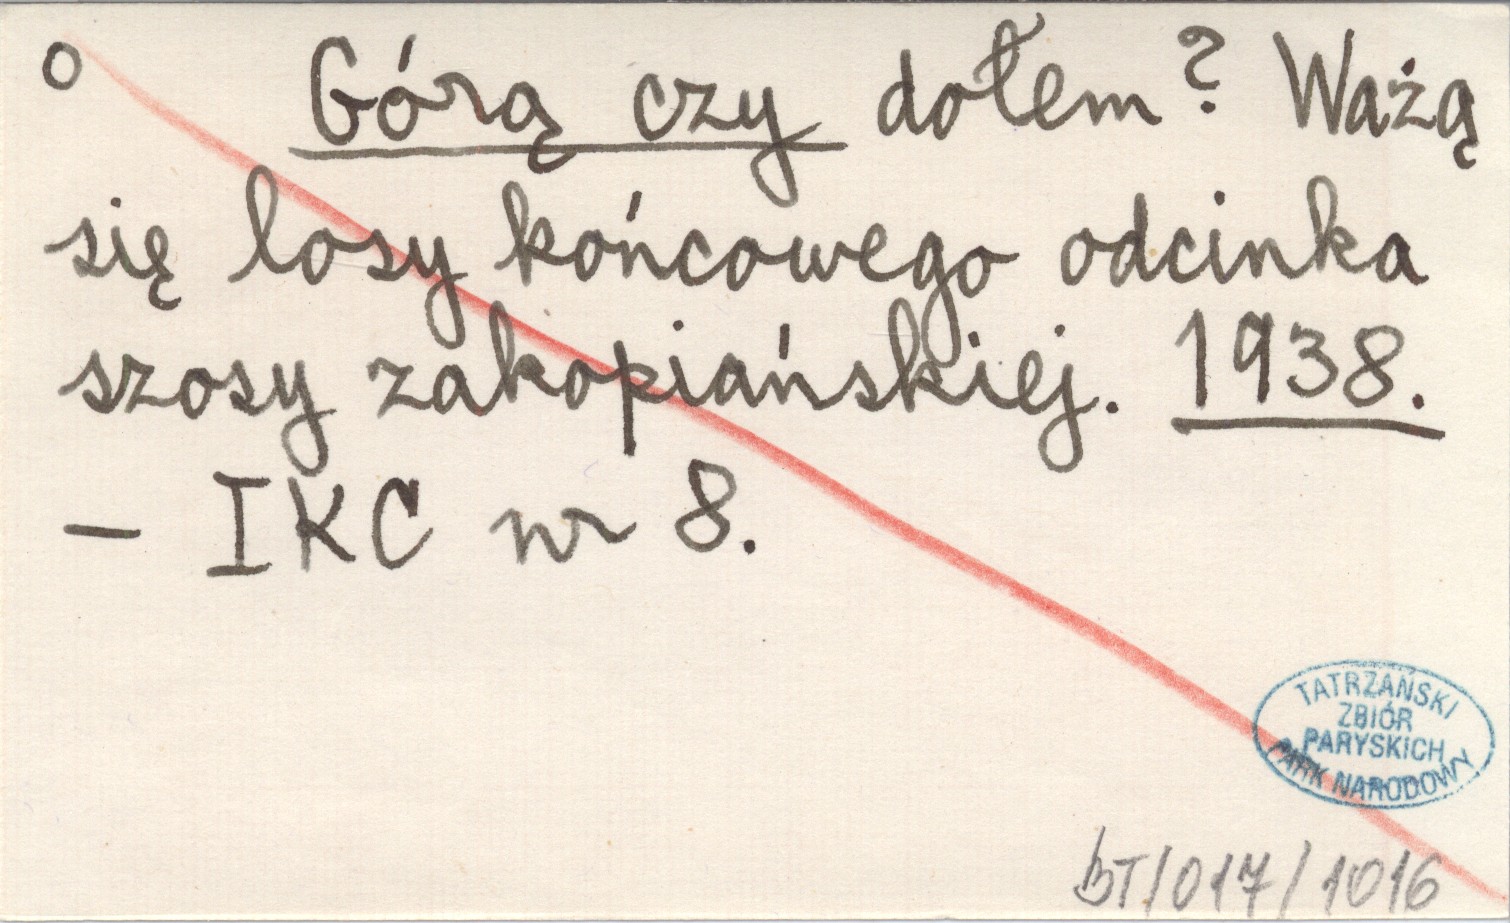 o Górą czy dołem? Ważą
się losy końcowego odcinka
szosy zakopiańskiej. 1938.
– IKC nr 8.
TATRZAŃSKI
ZBIÓR
PARYSKICH
PARK NARODOWY
BT/017/1016